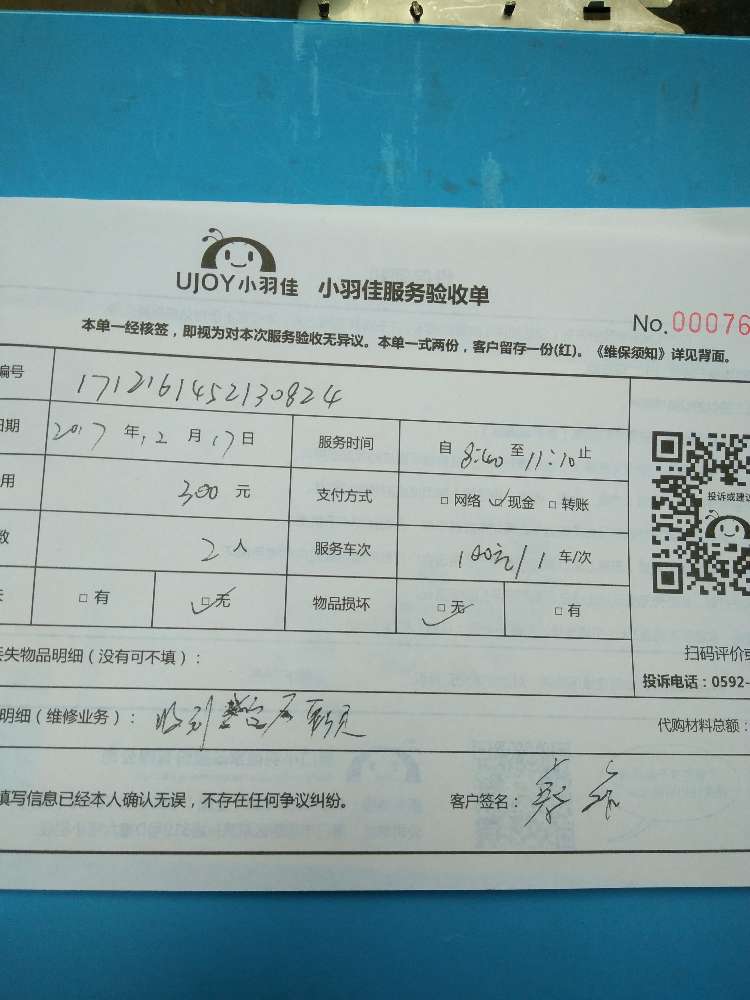 UJOY小羽佳 小羽佳服务验收单
No.00076
本单一经核签，即视为对本次服务验收无异议。本单一式两份，客户留存一份(红)。《维保须知》详见背面。
编号 1712161452130824
日期 2017 年 12 月 17 日 服务时间 自 8:40 至 11:10 止
用 300 元 支付方式 □ 网络 ☑ 现金 □ 转账
数 2 人 服务车次 100元/1 车/次
□ 有 ☑ 无 物品损坏 ☑ 无 □ 有
投诉或建议
丢失物品明细（没有可不填）：
扫码评价或
投诉电话：0592-
明细（维修业务）： 收到
代购材料总额：
填写信息已经本人确认无误，不存在任何争议纠纷。 客户签名：